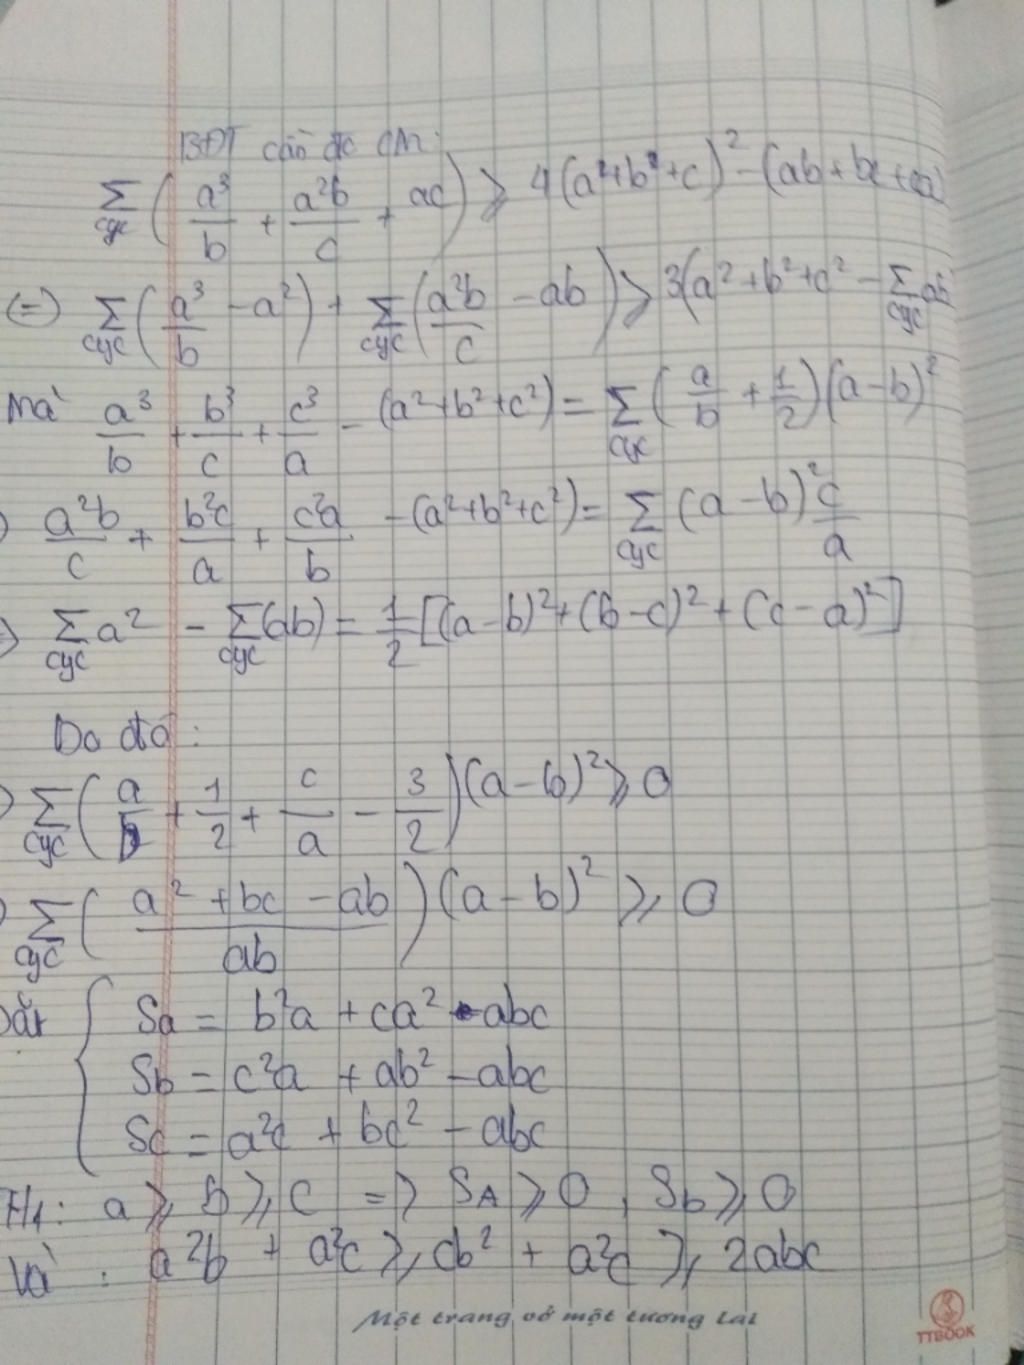 BĐT cần đc CM:
∑cyc (a³/b + a²b/c + ac) ⩾ 4(a²+b²+c)² - (ab + bc + ca)
(=) ∑cyc (a³/b - a²) + ∑cyc (a²b/c - ab) ⩾ 3(a²+b²+c² - ∑cyc ab
Mà a³/b + b³/c + c³/a - (a²+b²+c²) = ∑cyc (a/b + 1/2)(a-b)²
) a²b/c + b²c/a + c²a/b - (a²+b²+c²) = ∑cyc (a-b)² c/a
) ∑cyc a² - ∑cyc (ab) = 1/2 [(a-b)² + (b-c)² + (c-a)²]
Do đó:
) ∑cyc (a/b + 1/2 + c/a - 3/2)(a-b)² ⩾ 0
) ∑cyc ((a² + bc - ab)/ab)(a-b)² ⩾ 0
{ Sa = b²a + ca² - abc
Sb = c²a + ab² - abc
Sc = a²c + bc² - abc
TH1: a ⩾ b ⩾ c => SA ⩾ 0, Sb ⩾ 0
Và: a²b + a²c ⩾ cb² + a²c ⩾ 2abc
Một trang vở một tương lai
TTBOOK